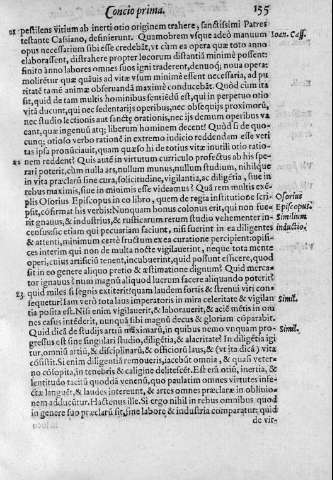 Concio prima. 155
21 pestilens vitium ab inerti otio originem trahere, sanctissimi Patres
testante Cassiano, definierunt. Quamobrem vsque adeò manuum Ioan. Cass.
opus necessarium sibi esse credebãt, vt cùm ea opera quæ toto anno
elaborassent, distrahere propter locorum distantiã minimè possent:
finito anno labores omnes suos igni traderent, denuóq; noua opera
molirétur quæ quãuis ad vitæ vsum minimè essent necessaria, ad pu
ritatẽ tamẽ animæ obseruandã maximè conducebãt. Quòd cùm ita
sit, quid de tam multis hominibus sentiẽdũ est, qui in perpetuo otio
vitã ducunt, qui nec sedentarijs operibus, nec obsequijs proximorũ,
nec studio lectionis aut sanctę orationis, nec ijs demum operibus va
cant, quæ ingenuũ atq; liberum hominem decent? Quòd si de quo-
cunq; otioso verbo rationẽ in extremo iudicio reddendam esse veri
tas ipsa pronuntiauit, quam quæso hi de totius vitæ inutili otio ratio-
22 nem reddent? Quis autẽ in virtutum curriculo profectus ab his spe-
rari poterit, cùm nulla ars, nullum munus, nullum studium, nihilque
in vita præclarũ sine cura, solicitudine, vigilantia, ac diligẽtia, siue in
rebus maximis, siue in minimis esse videamus? Quã rem multis exẽ-
plis Osorius Episcopus in co libro, quem de regia institutione scri- Osorius
psit, cõfirmat his verbis: Nunquam bonus colonus erit, qui non fue- Episcopus.
rit gnauus, & industrius, & rusticarum rerum studio vehementer in- Similium
census: sic etiam qui pecuariam faciunt, nisi fuerint in ea diligentes inductio.
& attenti, minimum certè fructum ex ea curatione percipient: opifi-
ces interim qui non de multa nocte vigilauerint, neque tota mente
operi, cuius artificiũ tenent, incubuerint, quid possunt efficere, quod
sit in eo genere aliquo pretio & æstimatione dignum? Quid merca-
tor ignauus? num magnũ aliquod lucrum facere aliquando poterit?
23 quid miles si segnis extiterit? quam laudem fortis & strenui viri con-
sequetur? Iam verò tota laus imperatoris in mira celeritate & vigilan Simil.
tia posita est. Nisi enim vigilauerit, & laborauerit, & aciẽ mẽtis in om
nes casus intẽderit, nunquã sibi magnũ decus & gloriam cõparabit.
Quid dicã de studijs artiũ maximarũ, in quibus nemo vnquam pro- Simil.
gressus est sine singulari studio, diligẽtia, & alacritate? In diligẽtia igi
tur, omniũ artiũ, & disciplinarũ, & officiorũ laus, & (vt ita dicã) vita
cõsistit. Si enim diligentiã remoueris, iacebũt omnia, & quasi veter-
no cõsopita, in tenebris & caligine delitescẽt. Est erã otiũ, inertia, &
lentitudo taciti quoddã venenũ, quo paulatim omnes virtutes infe-
ctæ languẽt, & laudes intereunt, & artes omnes præclaræ in obliuio-
nem adducẽtur. Hactenus ille. Si ergo nihil in rebus omnibus quod
in genere suo præclarũ sit, sine labore & industria comparatur: quid
de vir-